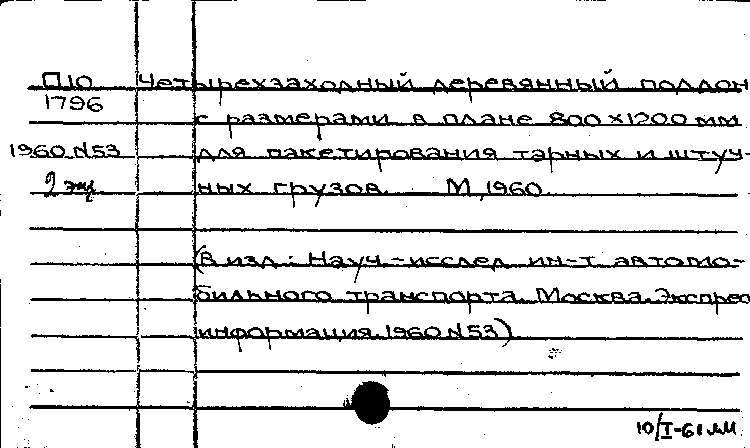 П10 Четырехзаходный деревянный поддон
1796
с размерами в плане 800×1200 мм
1960 N53 для пакетирования тарных и штуч-
2 экз ных грузов. М, 1960.
(В изд.: Науч.-исслед. ин-т автомо-
бильного транспорта. Москва. Экспрес
информация. 1960 N53)
10/I-61